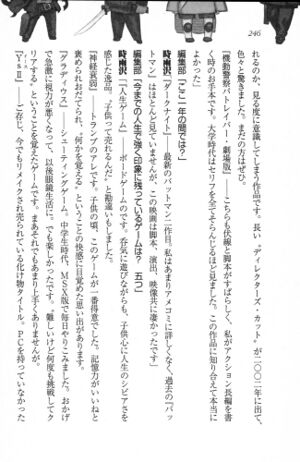 246
れるのか、見る度に意識してしまう作品です。長い〝ディレクターズ・カット〟が二〇〇二年に出て、
色々と驚きました。まだの方はぜひ。
『機動警察パトレイバー・劇場版』――こちらも伏線と脚本がすばらしく、私がアクション長編を書
く時のお手本です。大学時代はセリフを全てそらんじるほど見ました。この作品に知り合えて本当に
よかった」
編集部「ここ一年の間では?」
時雨沢「『ダークナイト』――最新のバットマン二作目。私はあまりアメコミに詳しくなく、過去の『バッ
トマン』はほとんど見ていませんが、この映画は脚本、演出、映像共に凄かったです」
編集部「今までの人生で強く印象に残っているゲームは? 五つ」
時雨沢「『人生ゲーム』――ボードゲームのです。呑気に遊びながらも、子供心に人生のシビアさを
感じた逸品。〝子供って売れるんだ〟と勘違いもしました。
『神経衰弱』――トランプのアレです。子供の頃、このゲームが一番得意でした。記憶力がいいねと
褒められおだてられ、〝何かを覚える〟ということの快感に目覚めた思い出があります。
『グラディウス』――シューティングゲーム。中学生時代、MSX版で毎日やりこみました。おかげ
で急激に視力が悪くなって、以後眼鏡生活に。でも楽しかったです。〝難しいけど何度も挑戦してク
リアする〟ということを覚えたゲームです。まあそれでもあまり上手くありませんが。
『YsⅡ』――ご存じ、今でもリメイクされ売られている化け物タイトル。PCを持っていなかった
イース